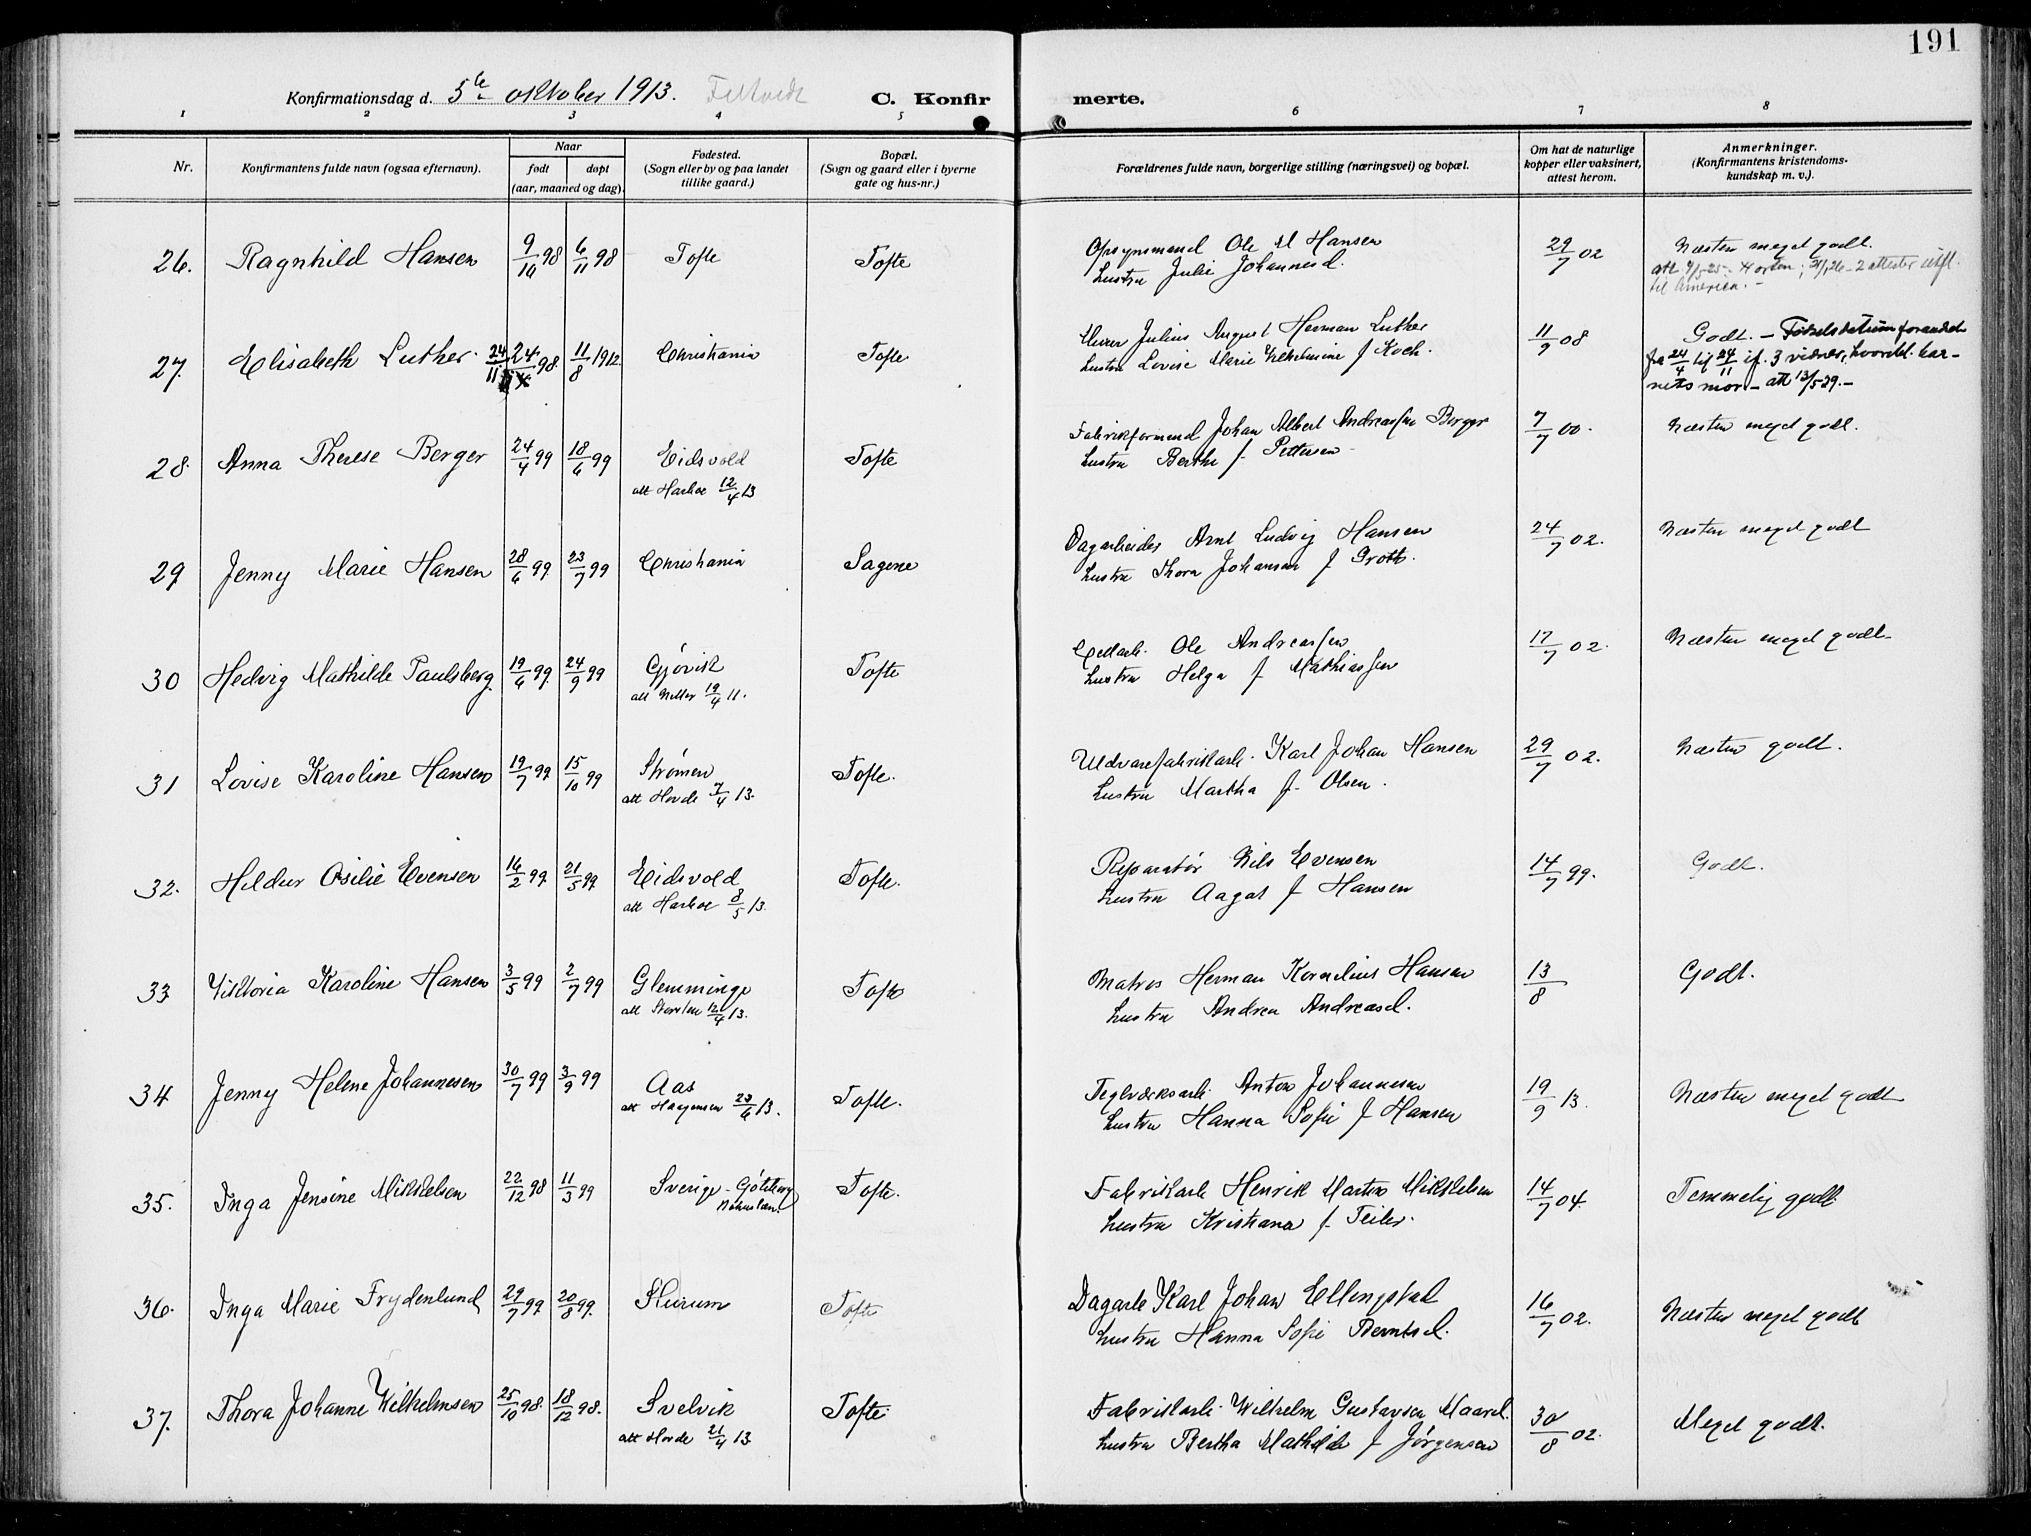 191
Konfirmationsdag d. 5te oktober 1913. Filtvedt C. Konfirmerte.
1 2 3 4 5 6 7 8
Nr. Konfirmantens fulde navn (ogsaa efternavn). Naar født døpt (aar, maaned og dag). Fødested. (Sogn eller by og paa landet tillike gaard.) Bopæl. (Sogn og gaard eller i byerne gate og hus-nr.) Forældrenes fulde navn, borgerlige stilling (næringsvei) og bopæl. Om hat de naturlige kopper eller vaksinert, attest herom. Anmerkninger. (Konfirmantens kristendoms-kundskap m. v.).
26. Ragnhild Hansen 9/10 98 6/11 98 Tofte Tofte Opsynsmand Ole M Hansen 29/7 02 Næsten meget godt.
Hustru Julie Johannesd. att 4/5 25 - Horten; 2 attester utst.
til Amerika. -
27. Elisabeth Luther 24/11 24/4 98. 11/8 1912. Christiania Tofte Murer Julius August Herman Luther 11/9 08 Godt. - Fødselsdatum forandret
Hustru Lovise Marie Vilhelmine f Koch. fra 24/4 til 24/11 if. 3 vidner, hvoribl. bar-
nets mor - att 13/5 29. -
28. Anna Therese Berger 24/4 99 18/6 99 Eidsvold Tofte Fabrikformand Johan Albert Andreassen Berger 7/7 00. Næsten meget godt.
att Harboe 12/4 13 Hustru Berthe f. Pettersen
29 Jenny Marie Hansen 28/6 99 23/7 99 Christiania Sagene Dagarbeider Arnt Ludvig Hansen 24/7 02. Næsten meget godt
Hustru Thora Johanna f Groth.
30 Hedvig Mathilde Paulsberg 19/6 99 24/9 99 Gjøvik Tofte Cellarb. Ole Andreassen 17/7 02. Næsten meget godt
att 19/4 11. Hustru Helga f Mathiassen
31 Lovise Karoline Hansen 19/7 99 15/10 99 Strømen Tofte. Uldvarefabrikarb. Karl Johan Hansen 29/7 02. Næsten godt.
att Hovde 7/4 13. Hustru Martha f. Olsen.
32. Hildur Osilie Evensen 16/2 99 21/5 99 Eidsvold Tofte. Reparatør Nils Evensen 14/7 99. Godt.
att Harboe 8/5 13. Hustru Aagot f Hansen
33 Viktoria Karoline Hansen 3/5 99 2/7 99 Glemminge Tofte Matros Herman Kornelius Hansen 13/8 Godt.
att 12/4 13. Hustru Andrea Andreasd.
34 Jenny Helene Johannesen 30/7 99 3/9 99 Aas Tofte. Teglverksarb. Anton Johannesen 19/9 13. Næsten meget godt
att Haagensen 23/6 13. Hustru Hanna Sofie f Hansen
35. Inga Jensine Mikkelsen 22/12 98 11/3 99 Sverige - Göteborg Tofte. Fabrikarb Henrik Marten Mikkelsen 14/7 04. Temmelig godt
Bohuslän. Hustru Kristiana f. Teiler.
36. Inga Marie Frydenlund 29/7 99 20/8 99. Hurum Tofte Dagarb Karl Johan Ellingstad 16/7 02. Næsten meget godt
Hustru Hanna Sofie Berntsd.
37. Thora Johanne Wilhelmsen 25/10 98. 18/12 98. Svelvik Tofte Fabrikarb. Wilhelm Gustavsen Maarud. 30/8 02. Meget godt.
att Hovde 21/4 13. Hustru Bertha Mathilde f Jørgensen